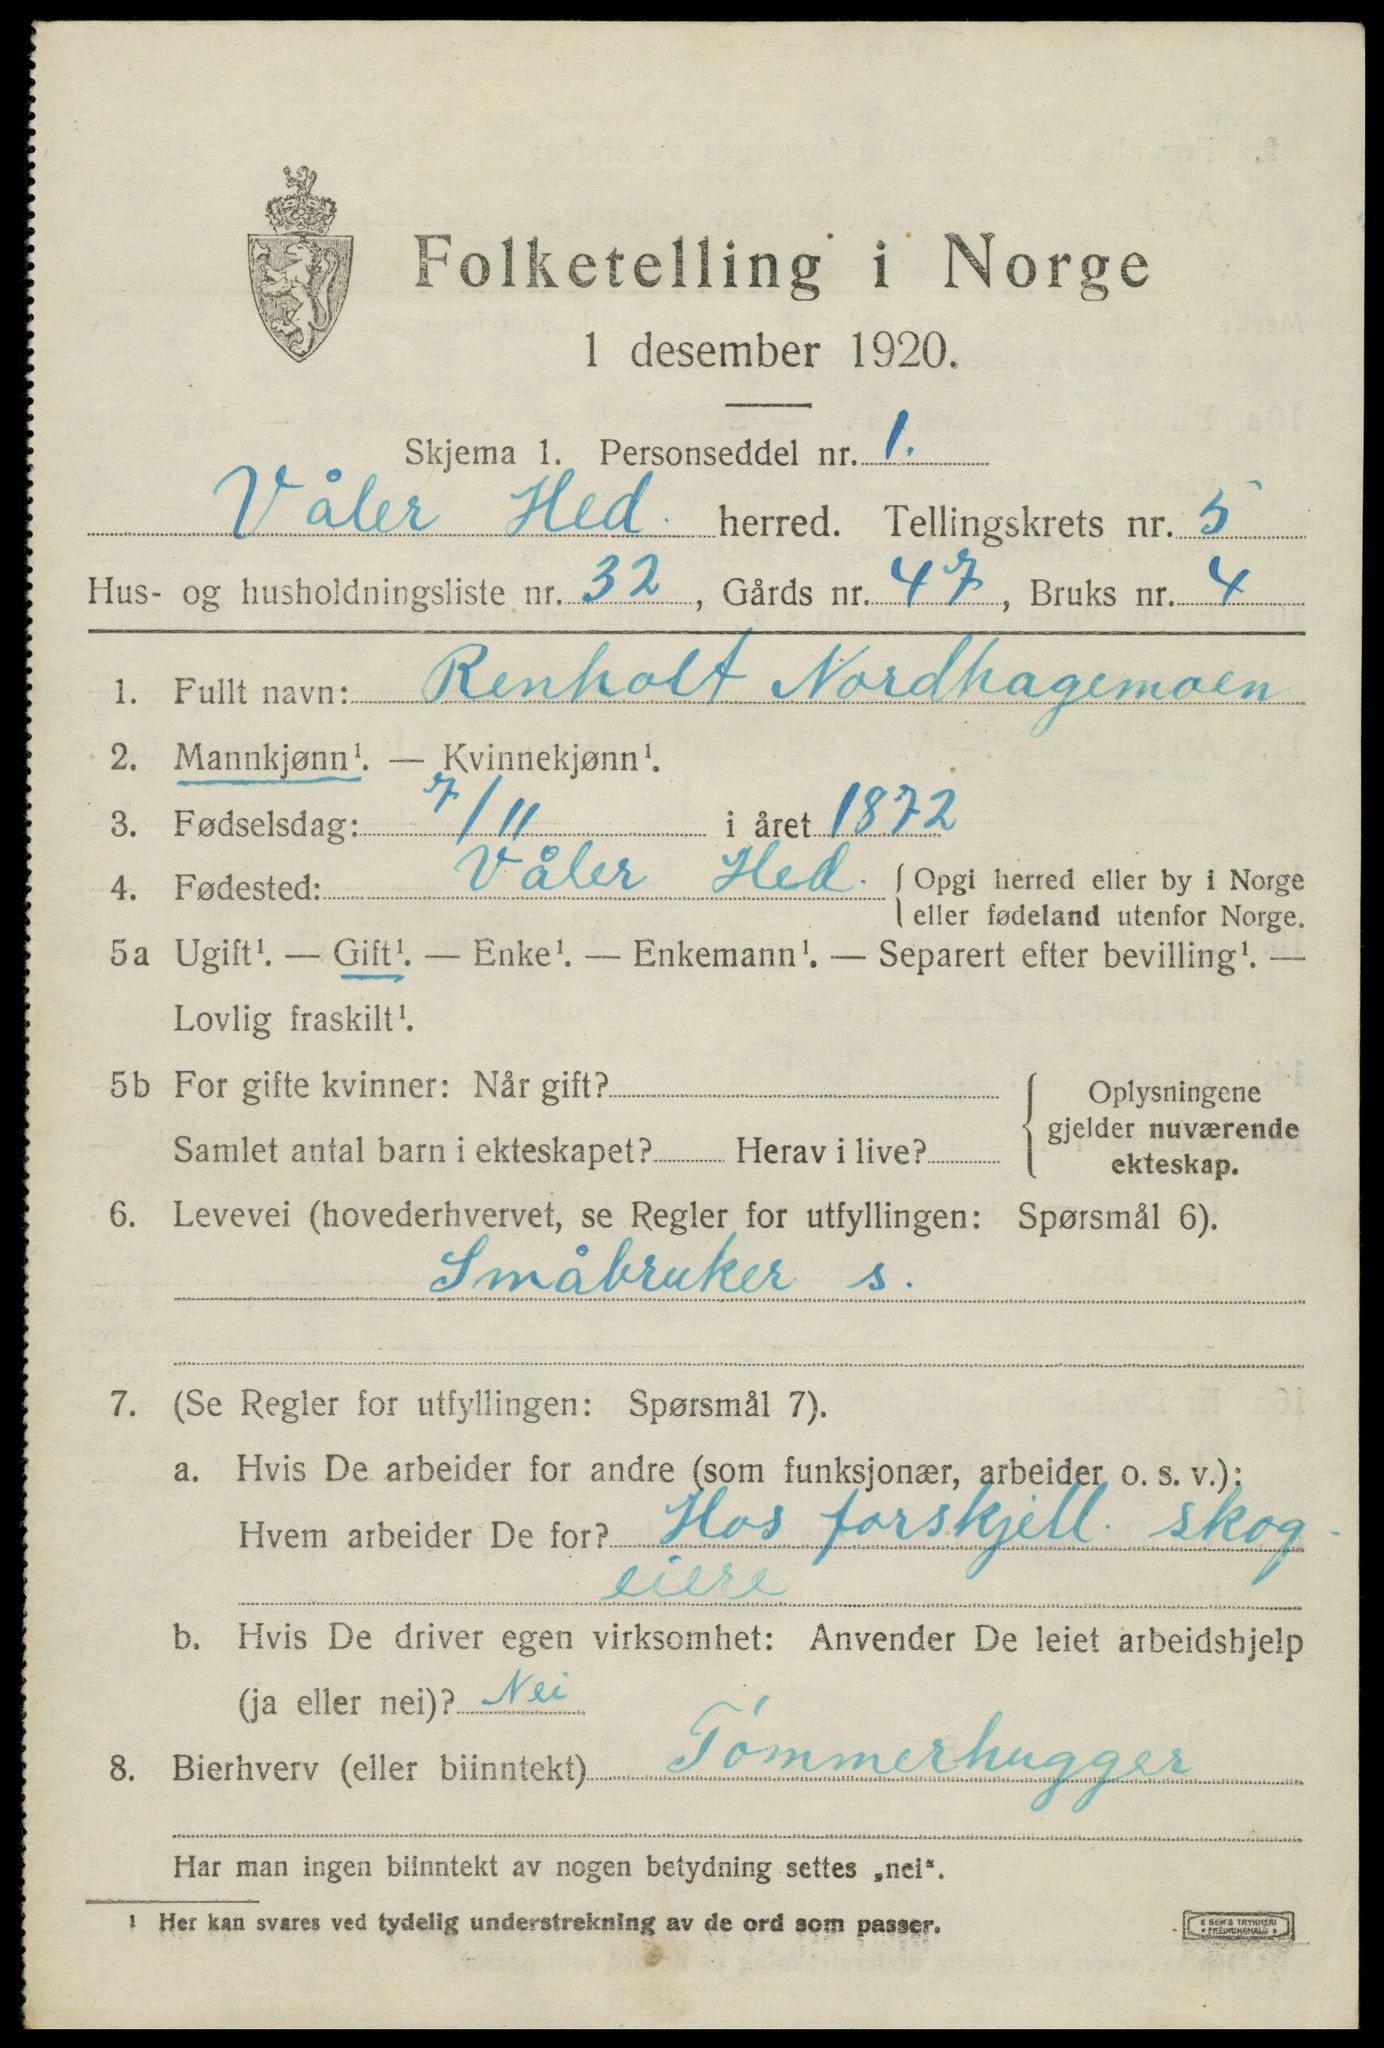 Folketelling i Norge
1 desember 1920.
Skjema 1. Personseddel nr. 1.
Våler Hed. herred. Tellingskrets nr. 5
Hus- og husholdningsliste nr. 32, Gårds nr. 47, Bruks nr. 4
1. Fullt navn: Renholt Nordhagemoen
2. Mannkjønn¹. — Kvinnekjønn¹.
3. Fødselsdag: 7/11 i året 1872
4. Fødested: Våler Hed. { Opgi herred eller by i Norge
eller fødeland utenfor Norge.
5a Ugift¹. — Gift¹. — Enke¹. — Enkemann¹. — Separert efter bevilling¹. —
Lovlig fraskilt¹.
5b For gifte kvinner: Når gift?
Samlet antal barn i ekteskapet? Herav i live?
Oplysningene
gjelder nuværende
ekteskap.
6. Levevei (hovederhvervet, se Regler for utfyllingen: Spørsmål 6).
Småbruker s.
7. (Se Regler for utfyllingen: Spørsmål 7).
a. Hvis De arbeider for andre (som funksjonær, arbeider o. s. v.):
Hvem arbeider De for? Hos forskjell. skog-
eiere
b. Hvis De driver egen virksomhet: Anvender De leiet arbeidshjelp
(ja eller nei)? Nei
8. Bierhverv (eller biinntekt) Tómmerhugger
Har man ingen biinntekt av nogen betydning settes „nei“.
¹ Her kan svares ved tydelig understrekning av de ord som passer.
E SEM'S TRYKKERI
FREDRIKSHALD